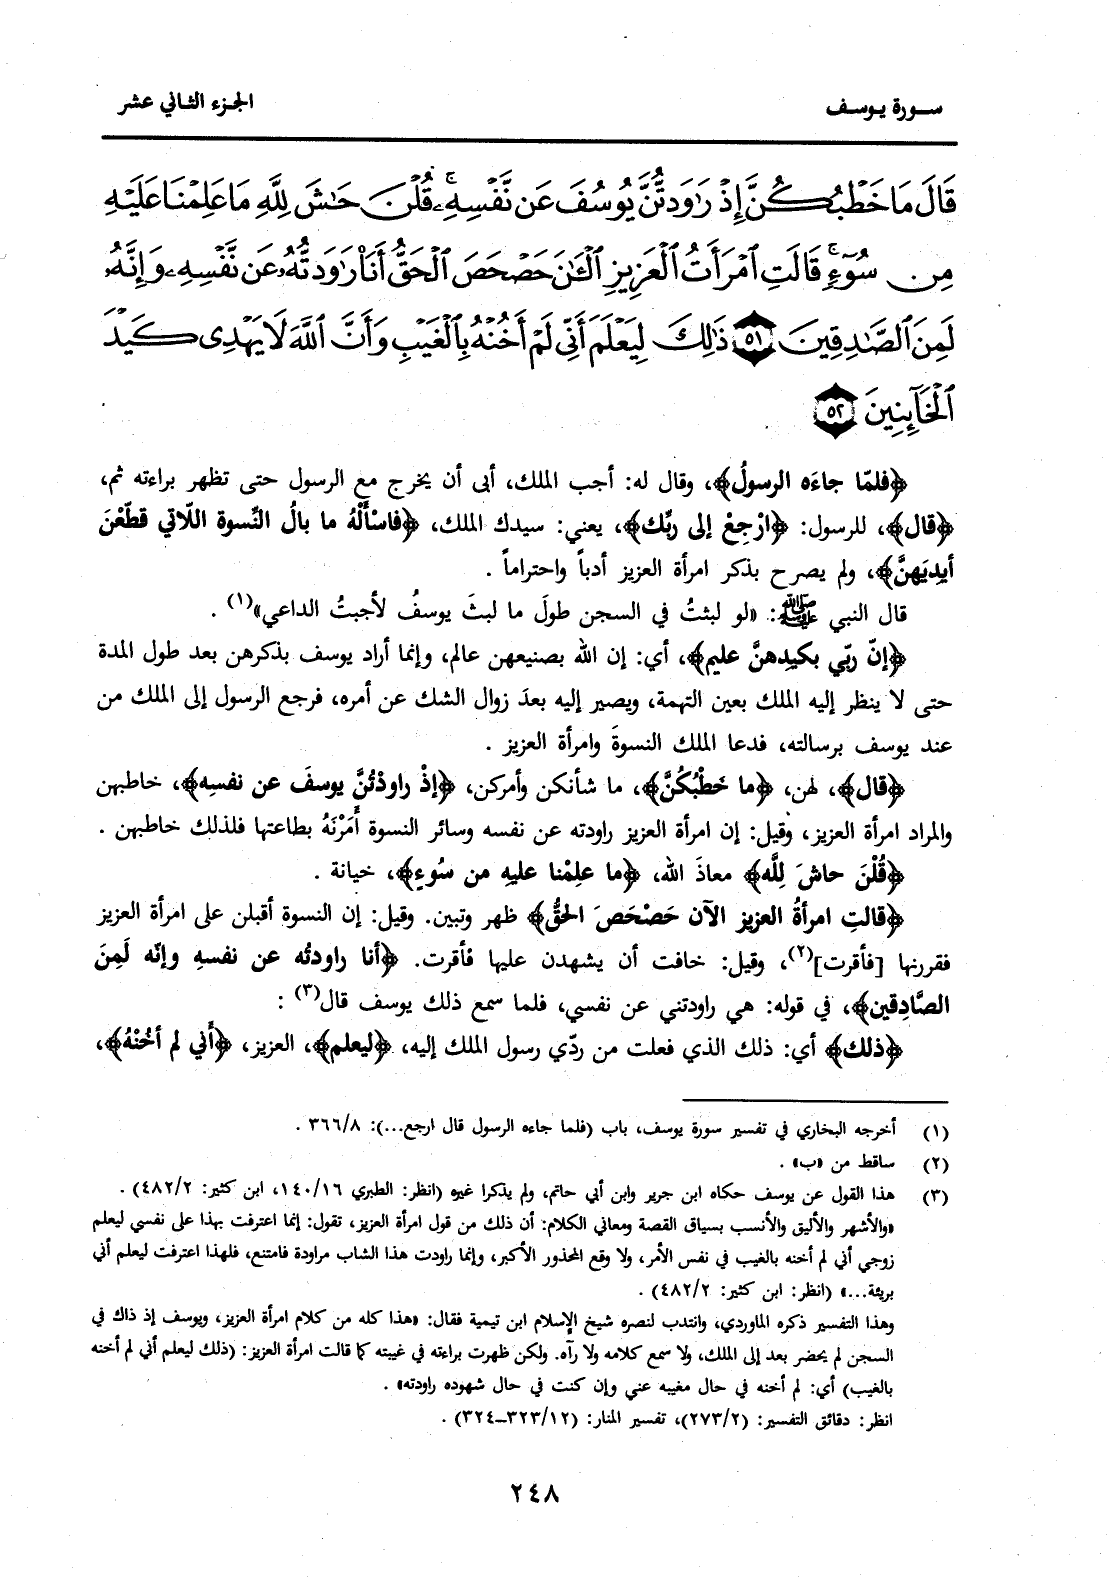 سورة يوسف
الجزء الثاني عشر
قَالَ مَا خَطْبُكُنَّ إِذْ رَٰوَدتُّنَّ يُوسُفَ عَن نَّفْسِهِۦ ۚ قُلْنَ حَٰشَ لِلَّهِ مَا عَلِمْنَا عَلَيْهِ
مِن سُوٓءٍ ۚ قَالَتِ ٱمْرَأَتُ ٱلْعَزِيزِ ٱلْـَٰٔنَ حَصْحَصَ ٱلْحَقُّ أَنَا۠ رَٰوَدتُّهُۥ عَن نَّفْسِهِۦ وَإِنَّهُۥ
لَمِنَ ٱلصَّٰدِقِينَ ٥١ ذَٰلِكَ لِيَعْلَمَ أَنِّى لَمْ أَخُنْهُ بِٱلْغَيْبِ وَأَنَّ ٱللَّهَ لَا يَهْدِى كَيْدَ
ٱلْخَآئِنِينَ ٥٢
﴿فلمّا جاءَه الرسولُ﴾، وقال له: أجب الملك، أبى أن يخرج مع الرسول حتى تظهر براءته ثم،
﴿قال﴾، للرسول: ﴿ارْجِعْ إلى ربِّك﴾، يعني: سيدك الملك، ﴿فاسْأَلْهُ ما بالُ النِّسوة اللّاتي قطّعْنَ
أيدِيَهنَّ﴾، ولم يصرح بذكر امرأة العزيز أدباً واحتراماً .
قال النبي ﷺ: «لو لبثتُ في السجن طولَ ما لبثَ يوسفُ لأجبتُ الداعي»(١) .
﴿إنّ ربّي بكيدهنَّ عليم﴾، أي: إن الله بصنيعهن عالم، وإنما أراد يوسف بذكرهن بعد طول المدة
حتى لا ينظر إليه الملك بعين التهمة، ويصير إليه بعدَ زوال الشك عن أمره، فرجع الرسول إلى الملك من
عند يوسف برسالته، فدعا الملك النسوةَ وامرأة العزيز .
﴿قال﴾، لهن، ﴿ما خَطْبُكُنَّ﴾، ما شأنكن وأمركن، ﴿إذْ راودْتُنَّ يوسفَ عن نفسِه﴾، خاطبهن
والمراد امرأة العزيز، وقيل: إن امرأة العزيز راودته عن نفسه وسائر النسوة أَمَرْنَهُ بطاعتها فلذلك خاطبهن .
﴿قُلْنَ حاشَ لِلَّه﴾ معاذَ الله، ﴿ما علِمْنا عليه من سُوءٍ﴾، خيانة .
﴿قالتِ امرأةُ العزيز الآن حَصْحَصَ الحقُّ﴾ ظهر وتبين. وقيل: إن النسوة أقبلن على امرأة العزيز
فقررنها [فأقرت](٢)، وقيل: خافت أن يشهدن عليها فأقرت. ﴿أنا راودتُه عن نفسهِ وإنّه لَمِنَ
الصَّادِقين﴾، في قوله: هي راودتني عن نفسي، فلما سمع ذلك يوسف قال(٣) :
﴿ذلك﴾ أي: ذلك الذي فعلت من ردّي رسول الملك إليه، ﴿ليعلم﴾، العزيز، ﴿أَني لم أخُنْهُ﴾،
(١) أخرجه البخاري في تفسير سورة يوسف، باب (فلما جاءه الرسول قال ارجع...): ٣٦٦/٨ .
(٢) ساقط من «ب» .
(٣) هذا القول عن يوسف حكاه ابن جرير وابن أبي حاتم، ولم يذكرا غيره (انظر: الطبري ١٤٠/١٦، ابن كثير: ٤٨٢/٢) .
«والأشهر والأليق والأنسب بسياق القصة ومعاني الكلام: أن ذلك من قول امرأة العزيز، تقول: إنما اعترفت بهذا على نفسي ليعلم
زوجي أني لم أخنه بالغيب في نفس الأمر، ولا وقع المحذور الأكبر، وإنما راودت هذا الشاب مراودة فامتنع، فلهذا اعترفت ليعلم أني
بريئة...» (انظر: ابن كثير: ٤٨٢/٢) .
وهذا التفسير ذكره الماوردي، وانتدب لنصره شيخ الإسلام ابن تيمية فقال: «هذا كله من كلام امرأة العزيز، ويوسف إذ ذاك في
السجن لم يحضر بعد إلى الملك، ولا سمع كلامه ولا رآه. ولكن ظهرت براءته في غيبته كما قالت امرأة العزيز: (ذلك ليعلم أني لم أخنه
بالغيب) أي: لم أخنه في حال مغيبه عني وإن كنت في حال شهوده راودته» .
انظر: دقائق التفسير: (٢٧٣/٢)، تفسير المنار: (٣٢٣/١٢_٣٢٤) .
٢٤٨